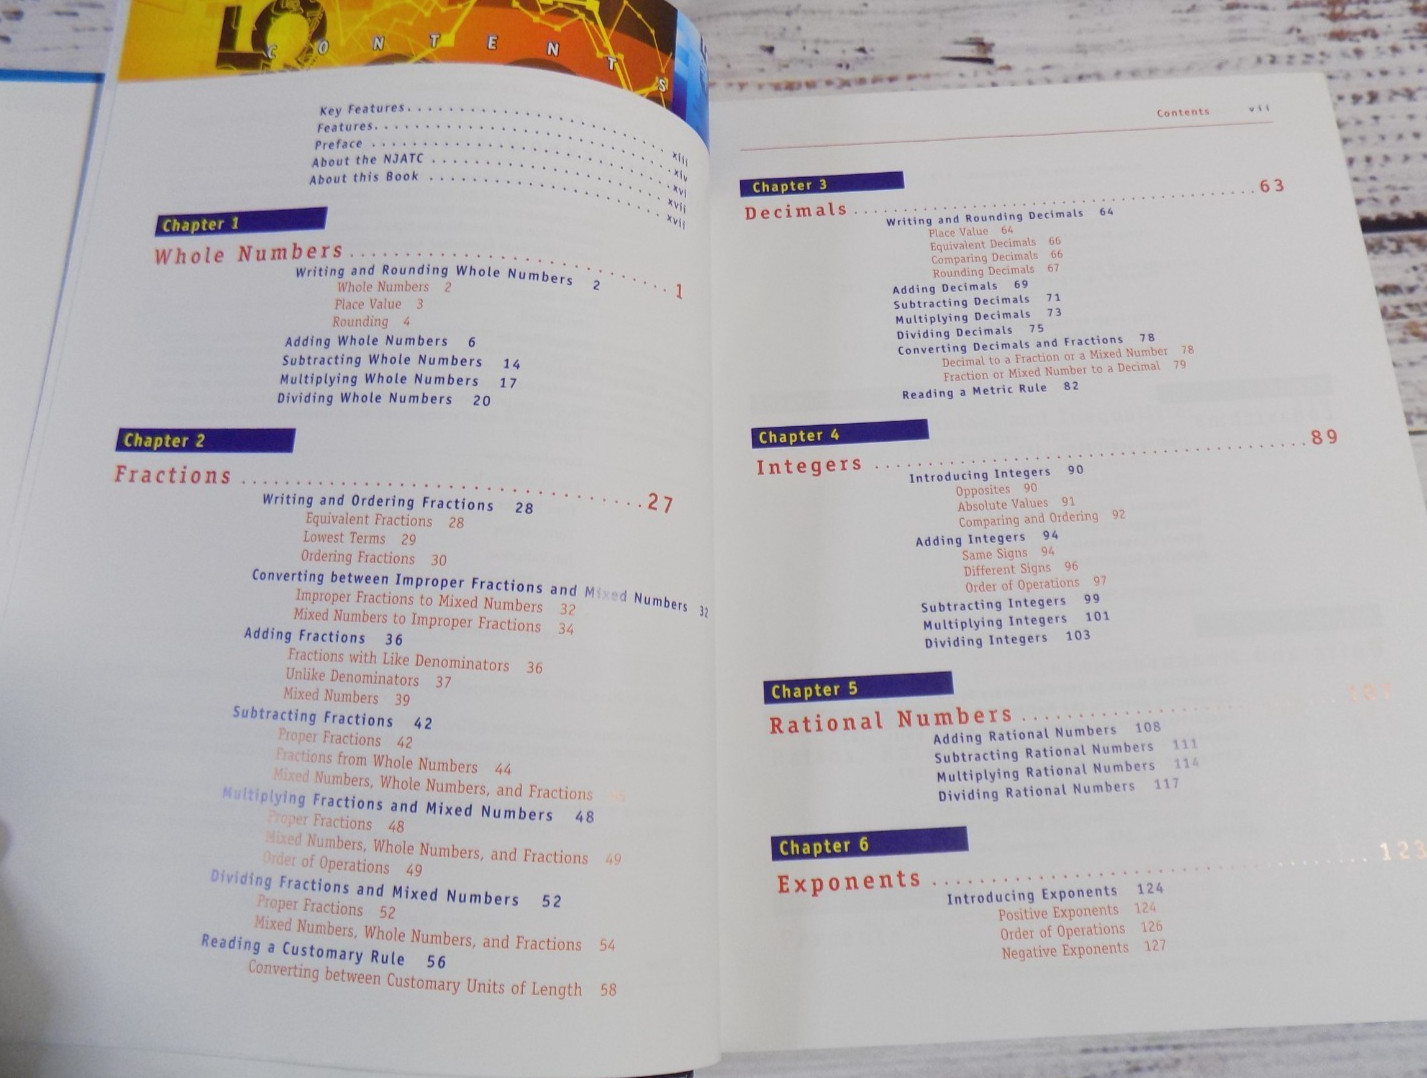 CONTENTS
Key Features . . . . . . . . . . . . . . . . . . . . xiii
Features . . . . . . . . . . . . . . . . . . . . xiv
Preface . . . . . . . . . . . . . . . . . . . . xvi
About the NJATC . . . . . . . . . . . . . . . . . . . . xvii
About this Book . . . . . . . . . . . . . . . . . . . . xvii
Chapter 1
Whole Numbers . . . . . . . . . . . . . . . . . . . . 1
Writing and Rounding Whole Numbers 2
Whole Numbers 2
Place Value 3
Rounding 4
Adding Whole Numbers 6
Subtracting Whole Numbers 14
Multiplying Whole Numbers 17
Dividing Whole Numbers 20
Chapter 2
Fractions . . . . . . . . . . . . . . . . . . . . 27
Writing and Ordering Fractions 28
Equivalent Fractions 28
Lowest Terms 29
Ordering Fractions 30
Converting between Improper Fractions and Mixed Numbers 32
Improper Fractions to Mixed Numbers 32
Mixed Numbers to Improper Fractions 34
Adding Fractions 36
Fractions with Like Denominators 36
Unlike Denominators 37
Mixed Numbers 39
Subtracting Fractions 42
Proper Fractions 42
Fractions from Whole Numbers 44
Mixed Numbers, Whole Numbers, and Fractions
Multiplying Fractions and Mixed Numbers 48
Proper Fractions 48
Mixed Numbers, Whole Numbers, and Fractions 49
Order of Operations 49
Dividing Fractions and Mixed Numbers 52
Proper Fractions 52
Mixed Numbers, Whole Numbers, and Fractions 54
Reading a Customary Rule 56
Converting between Customary Units of Length 58
Contents vii
Chapter 3
Decimals . . . . . . . . . . . . . . . . . . . . 63
Writing and Rounding Decimals 64
Place Value 64
Equivalent Decimals 66
Comparing Decimals 66
Rounding Decimals 67
Adding Decimals 69
Subtracting Decimals 71
Multiplying Decimals 73
Dividing Decimals 75
Converting Decimals and Fractions 78
Decimal to a Fraction or a Mixed Number 78
Fraction or Mixed Number to a Decimal 79
Reading a Metric Rule 82
Chapter 4
Integers . . . . . . . . . . . . . . . . . . . . 89
Introducing Integers 90
Opposites 90
Absolute Values 91
Comparing and Ordering 92
Adding Integers 94
Same Signs 94
Different Signs 96
Order of Operations 97
Subtracting Integers 99
Multiplying Integers 101
Dividing Integers 103
Chapter 5
Rational Numbers . . . . . . . . . . . . . . . . . . . . 107
Adding Rational Numbers 108
Subtracting Rational Numbers 111
Multiplying Rational Numbers 114
Dividing Rational Numbers 117
Chapter 6
Exponents . . . . . . . . . . . . . . . . . . . . 123
Introducing Exponents 124
Positive Exponents 124
Order of Operations 126
Negative Exponents 127